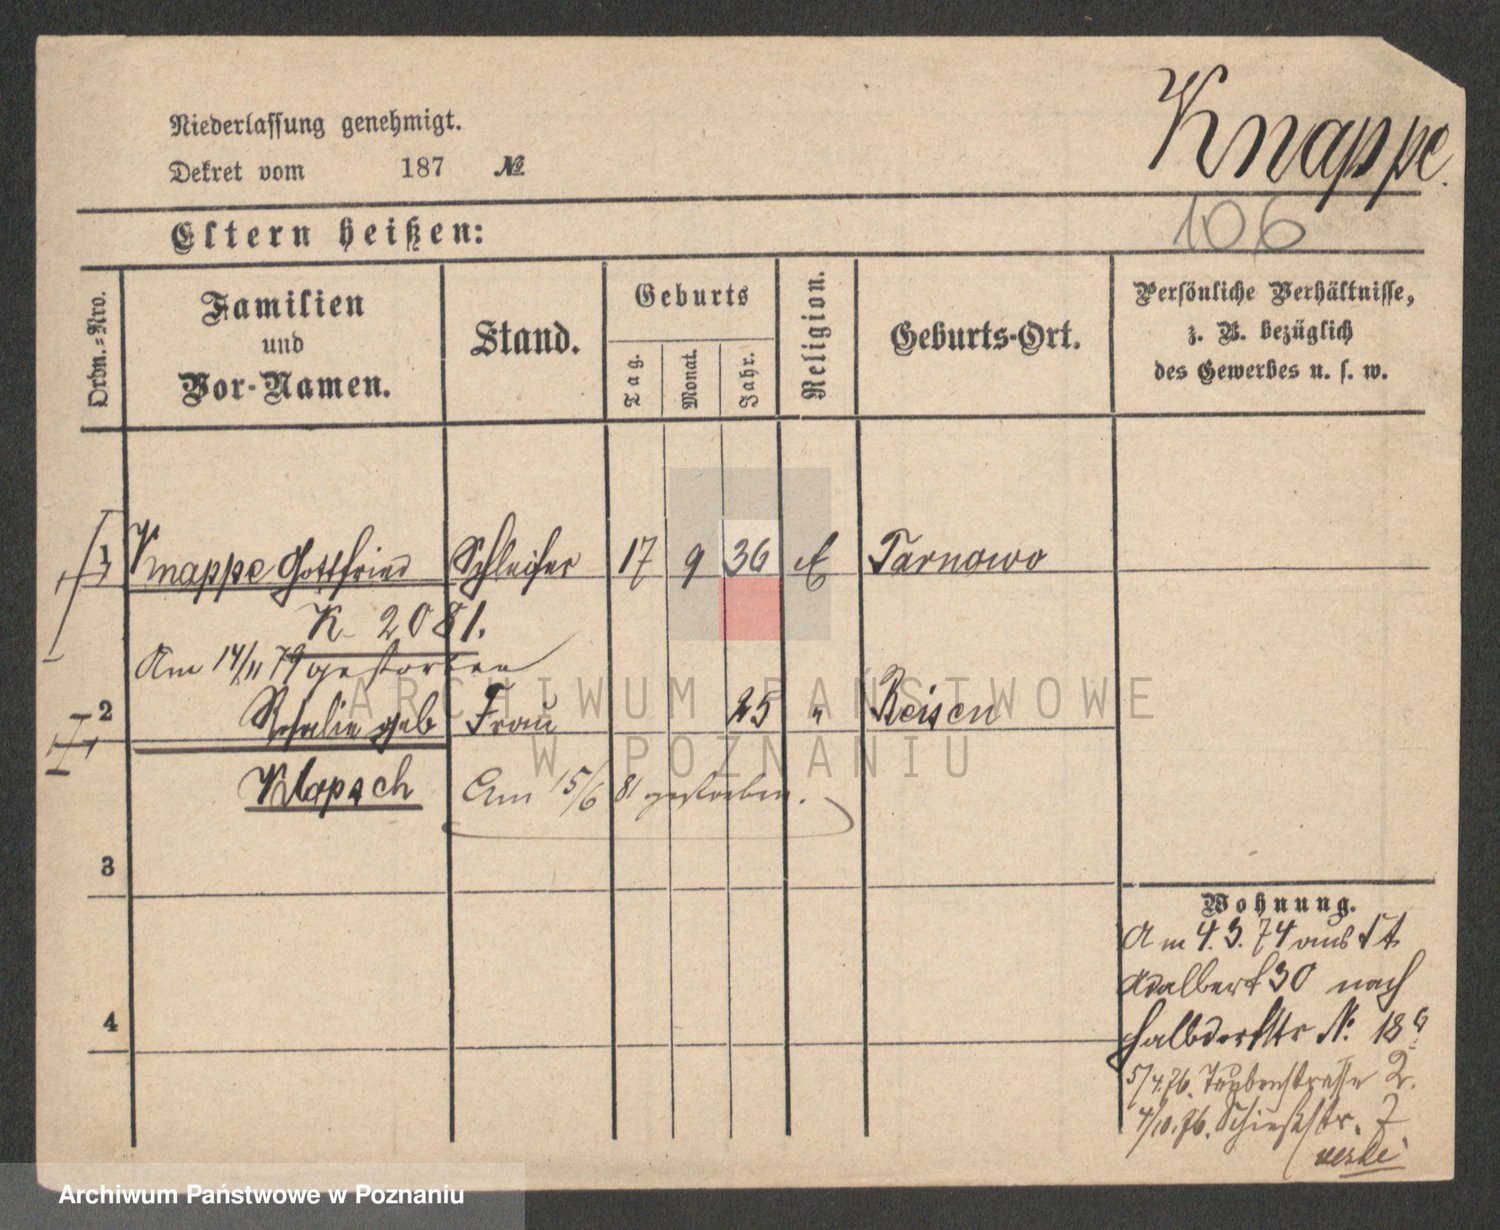 Knappe.
Niederlassung genehmigt.
Dekret vom 187 №
106
Eltern heißen:
Ordn.=Nro.
Familien
und
Vor-Namen.
Stand.
Geburts
Tag.
Monat.
Jahr.
Religion.
Geburts-Ort.
Persönliche Verhältnisse,
z. B. bezüglich
des Gewerbes u. s. w.
1 Knappe Gottfried Schleifer 17 9 36 E Tarnowo
K. 2081.
Am 14/11 79 gestorben
2 Rosalie geb Frau 25 " Reisen
Klopsch Am 15/6 81 gestorben.
3
4
Wohnung.
Am 4.3.74 aus St
Adalbert 30 nach
Halbdorfstr №. 18a
5/4.76. Taubenstrasse 2.
4/10.76. Schießstr. 7
ARCHIWUM PAŃSTWOWE
W POZNANIU
Archiwum Państwowe w Poznaniu